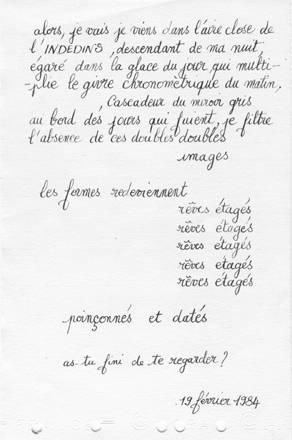 alors, je vais je viens dans l'aire close de
l'INDEDINS, descendant de ma nuit,
égaré dans la glace du jour qui multi-
-plie le givre chronométrique du matin,
, Cascadeur du miroir gris
au bord des jours qui fuient, je filtre
l'absence de ces doubles doubles
images
les formes redeviennent
rêves étagés
rêves étagés
rêves étagés
rêves étagés
rêves étagés
poinçonnés et datés
as-tu fini de te regarder ?
19 février 1984